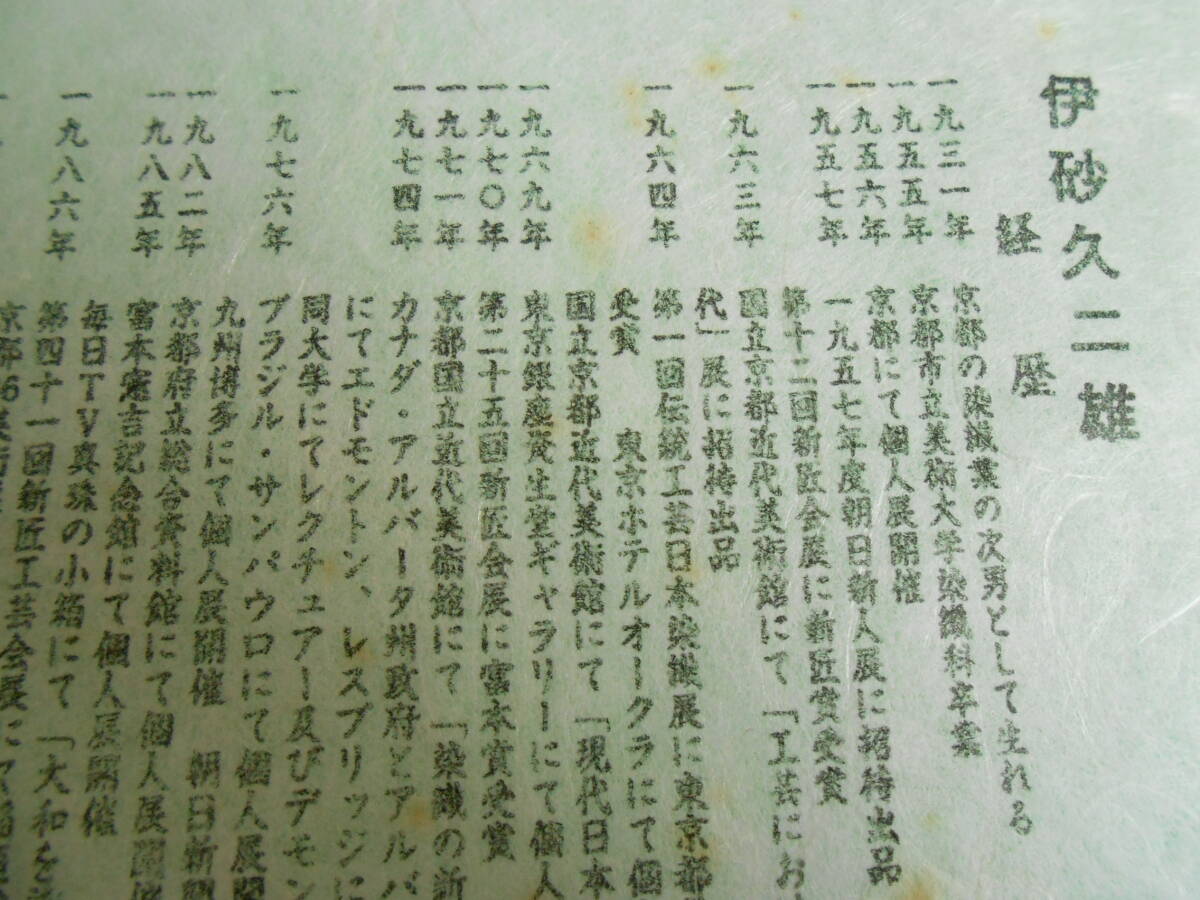 伊砂久二雄
経歴
一九三一年 京都の染織業の次男として生れる
一九五五年 京都市立美術大学染織科卒業
一九五六年 京都にて個人展開催
一九五七年 一九五七年度朝日新人展に招待出品
第十二回新匠会展に新匠賞受賞
一九六三年 国立京都近代美術館にて「工芸にお
代」展に招待出品
一九六四年 第一回伝統工芸日本染織展に東京都
受賞 東京ホテルオークラにて個
国立京都近代美術館にて「現代日本
一九六九年 東京銀座茂生堂ギャラリーにて個人
一九七〇年 第二十五回新匠会展に富本賞受賞
一九七一年 京都国立近代美術館にて「染織の新
一九七四年 カナダ・アルバータ州政府とアルバ
にてエドモントン、レスブリッジに
同大学にてレクチュアー及びデモン
一九七六年 ブラジル・サンパウロにて個人展開
九州博多にて個人展開催 朝日新聞
一九八二年 京都府立総合資料館にて個人展開催
一九八五年 富本憲吉記念館にて個人展開催
毎日TV真珠の小箱にて「大和を
一九八六年 第四十一回新匠工芸会展にて
京都